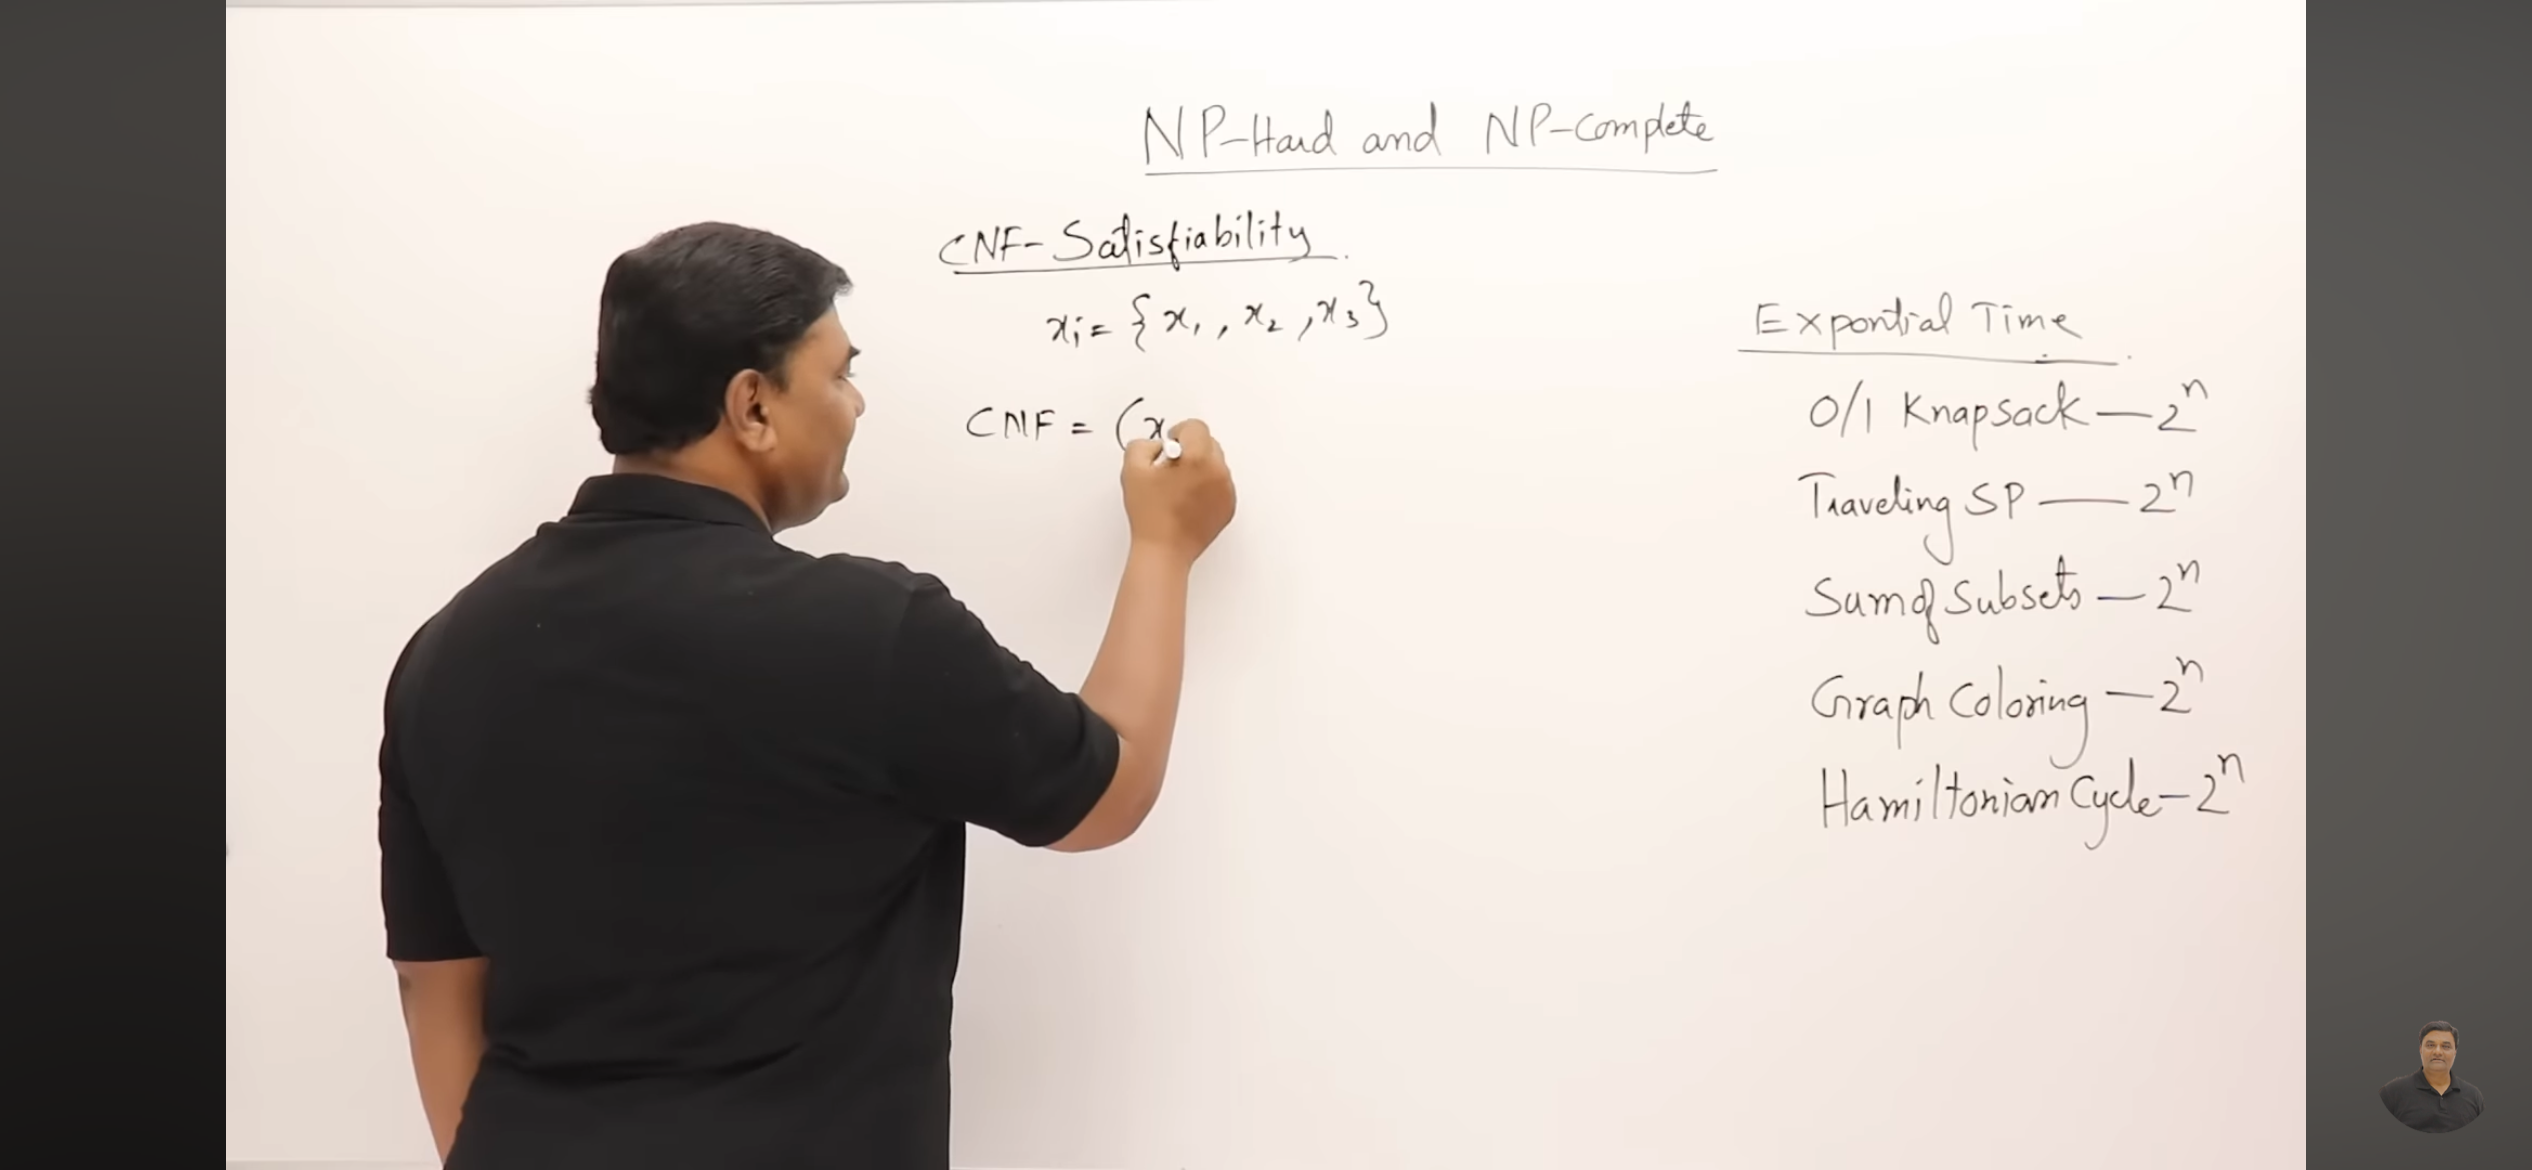 NP-Hard and NP-Complete
CNF-Satisfiability
xi = { x1, x2, x3}
CNF = (x
Expontial Time
0/1 Knapsack — 2^n
Traveling SP — 2^n
Sum of Subsets — 2^n
Graph Coloring — 2^n
Hamiltonian Cycle — 2^n